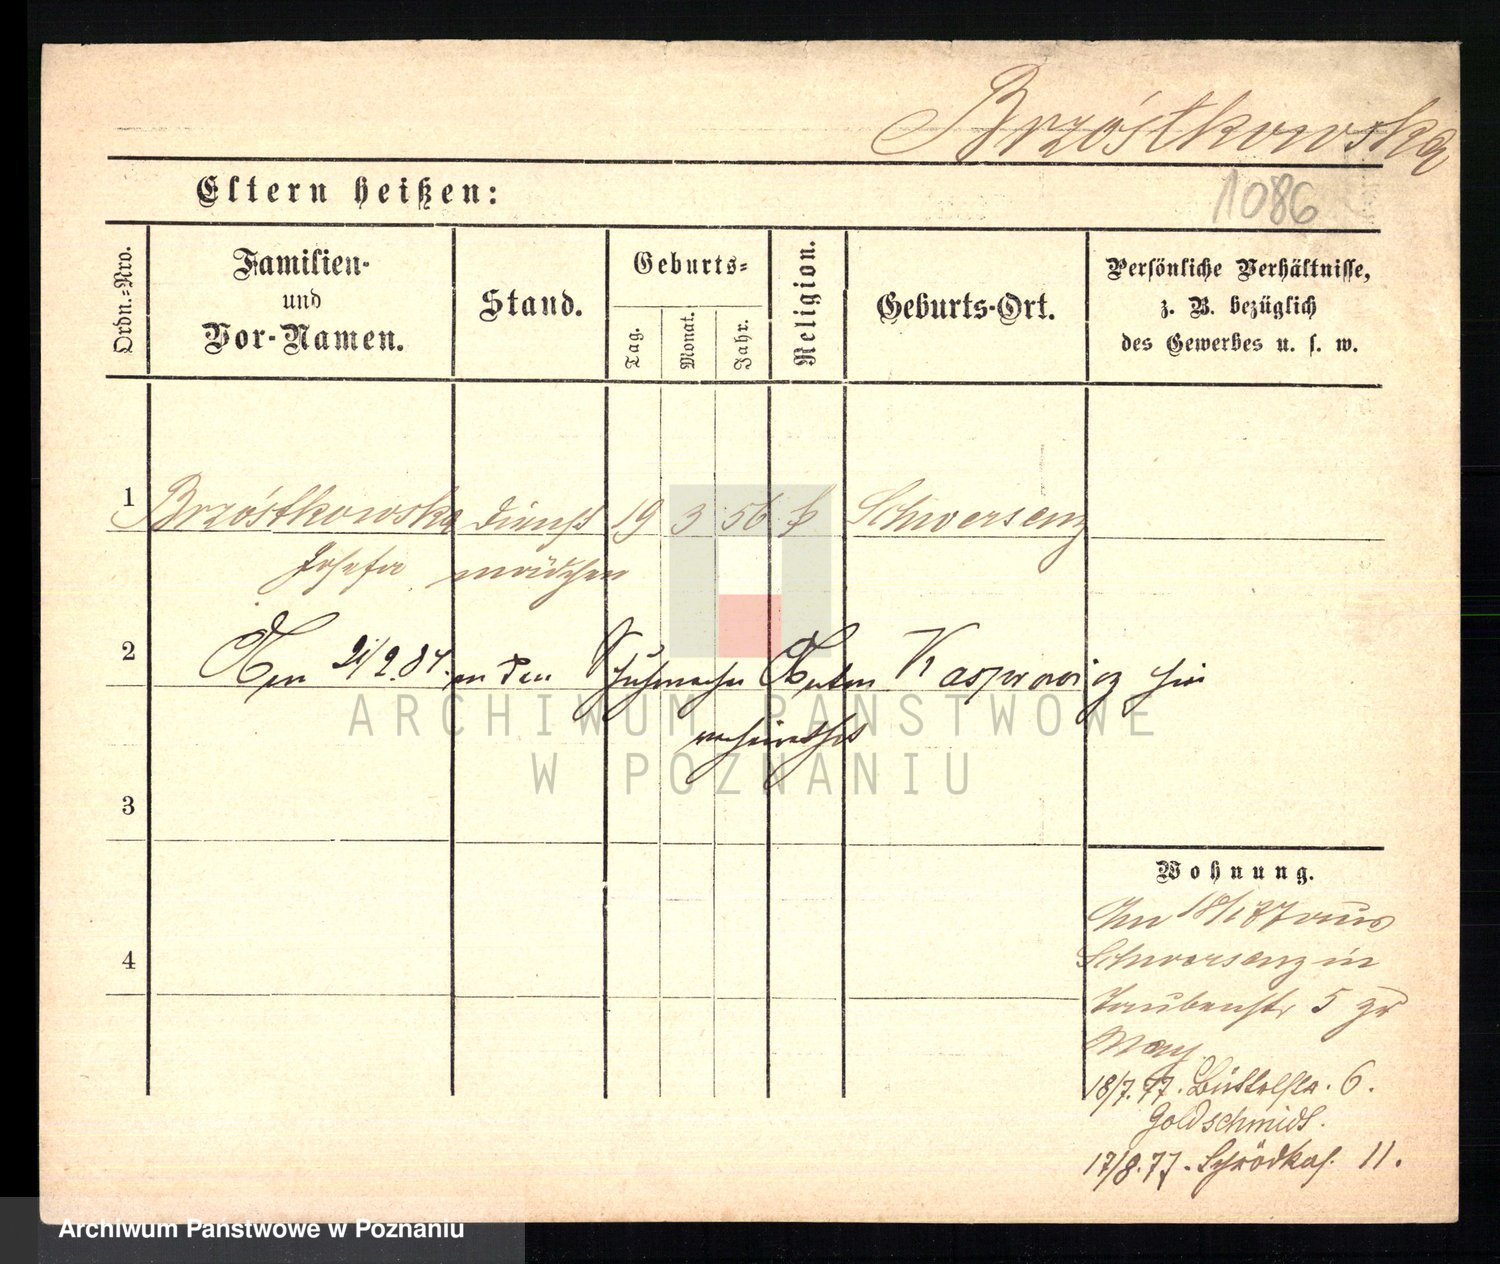 Brzóstkowska
1086
Eltern heißen:
Ordn.-Nro.
Familien-
und
Vor-Namen.
Stand.
Geburts-
Tag.
Monat.
Jahr.
Religion.
Geburts-Ort.
Persönliche Verhältnisse,
z. B. bezüglich
des Gewerbes u. s. w.
1 Brzóstkowska Dienst 19 3 56 k Schwersenz
Josefa mädchen
2 Am 21/2.84. an den Schuhmacher Anton Kasprowicz hier
verheirathet
ARCHIWUM PAŃSTWOWE
W POZNANIU
3
4
Wohnung.
Am 18/1 77 aus
Schwersenz in
Taubenstr 5 zu
May
18/7.77. Büttelstr. 6.
Goldschmidt.
17/8.77. Schrödkaf. 11.
Archiwum Państwowe w Poznaniu